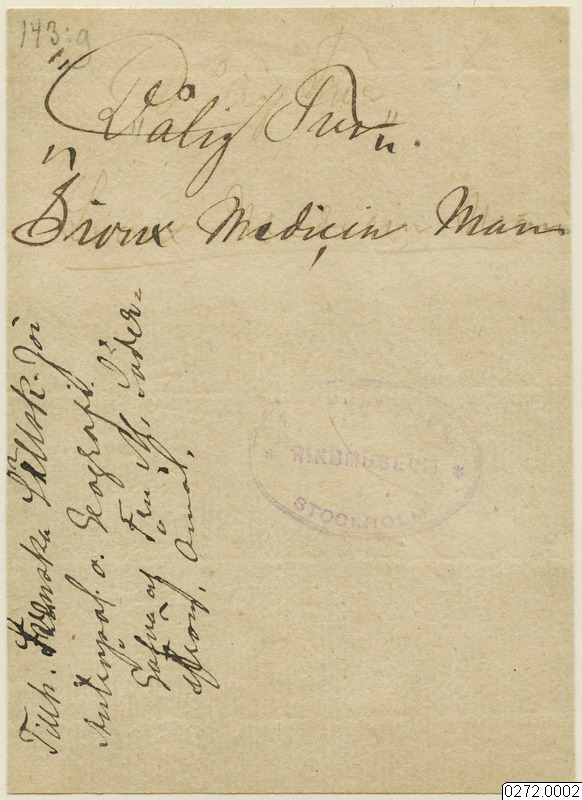 143:9
"Dålig Tron".
"Sioux Medicin Man
Tillh. Svenska Sällsk. för
Antropol. o. Geografi.
Gåfva af Fru M. Söder-
Åmål.
RIKSMUSEUM
STOCKHOLM
0272.0002